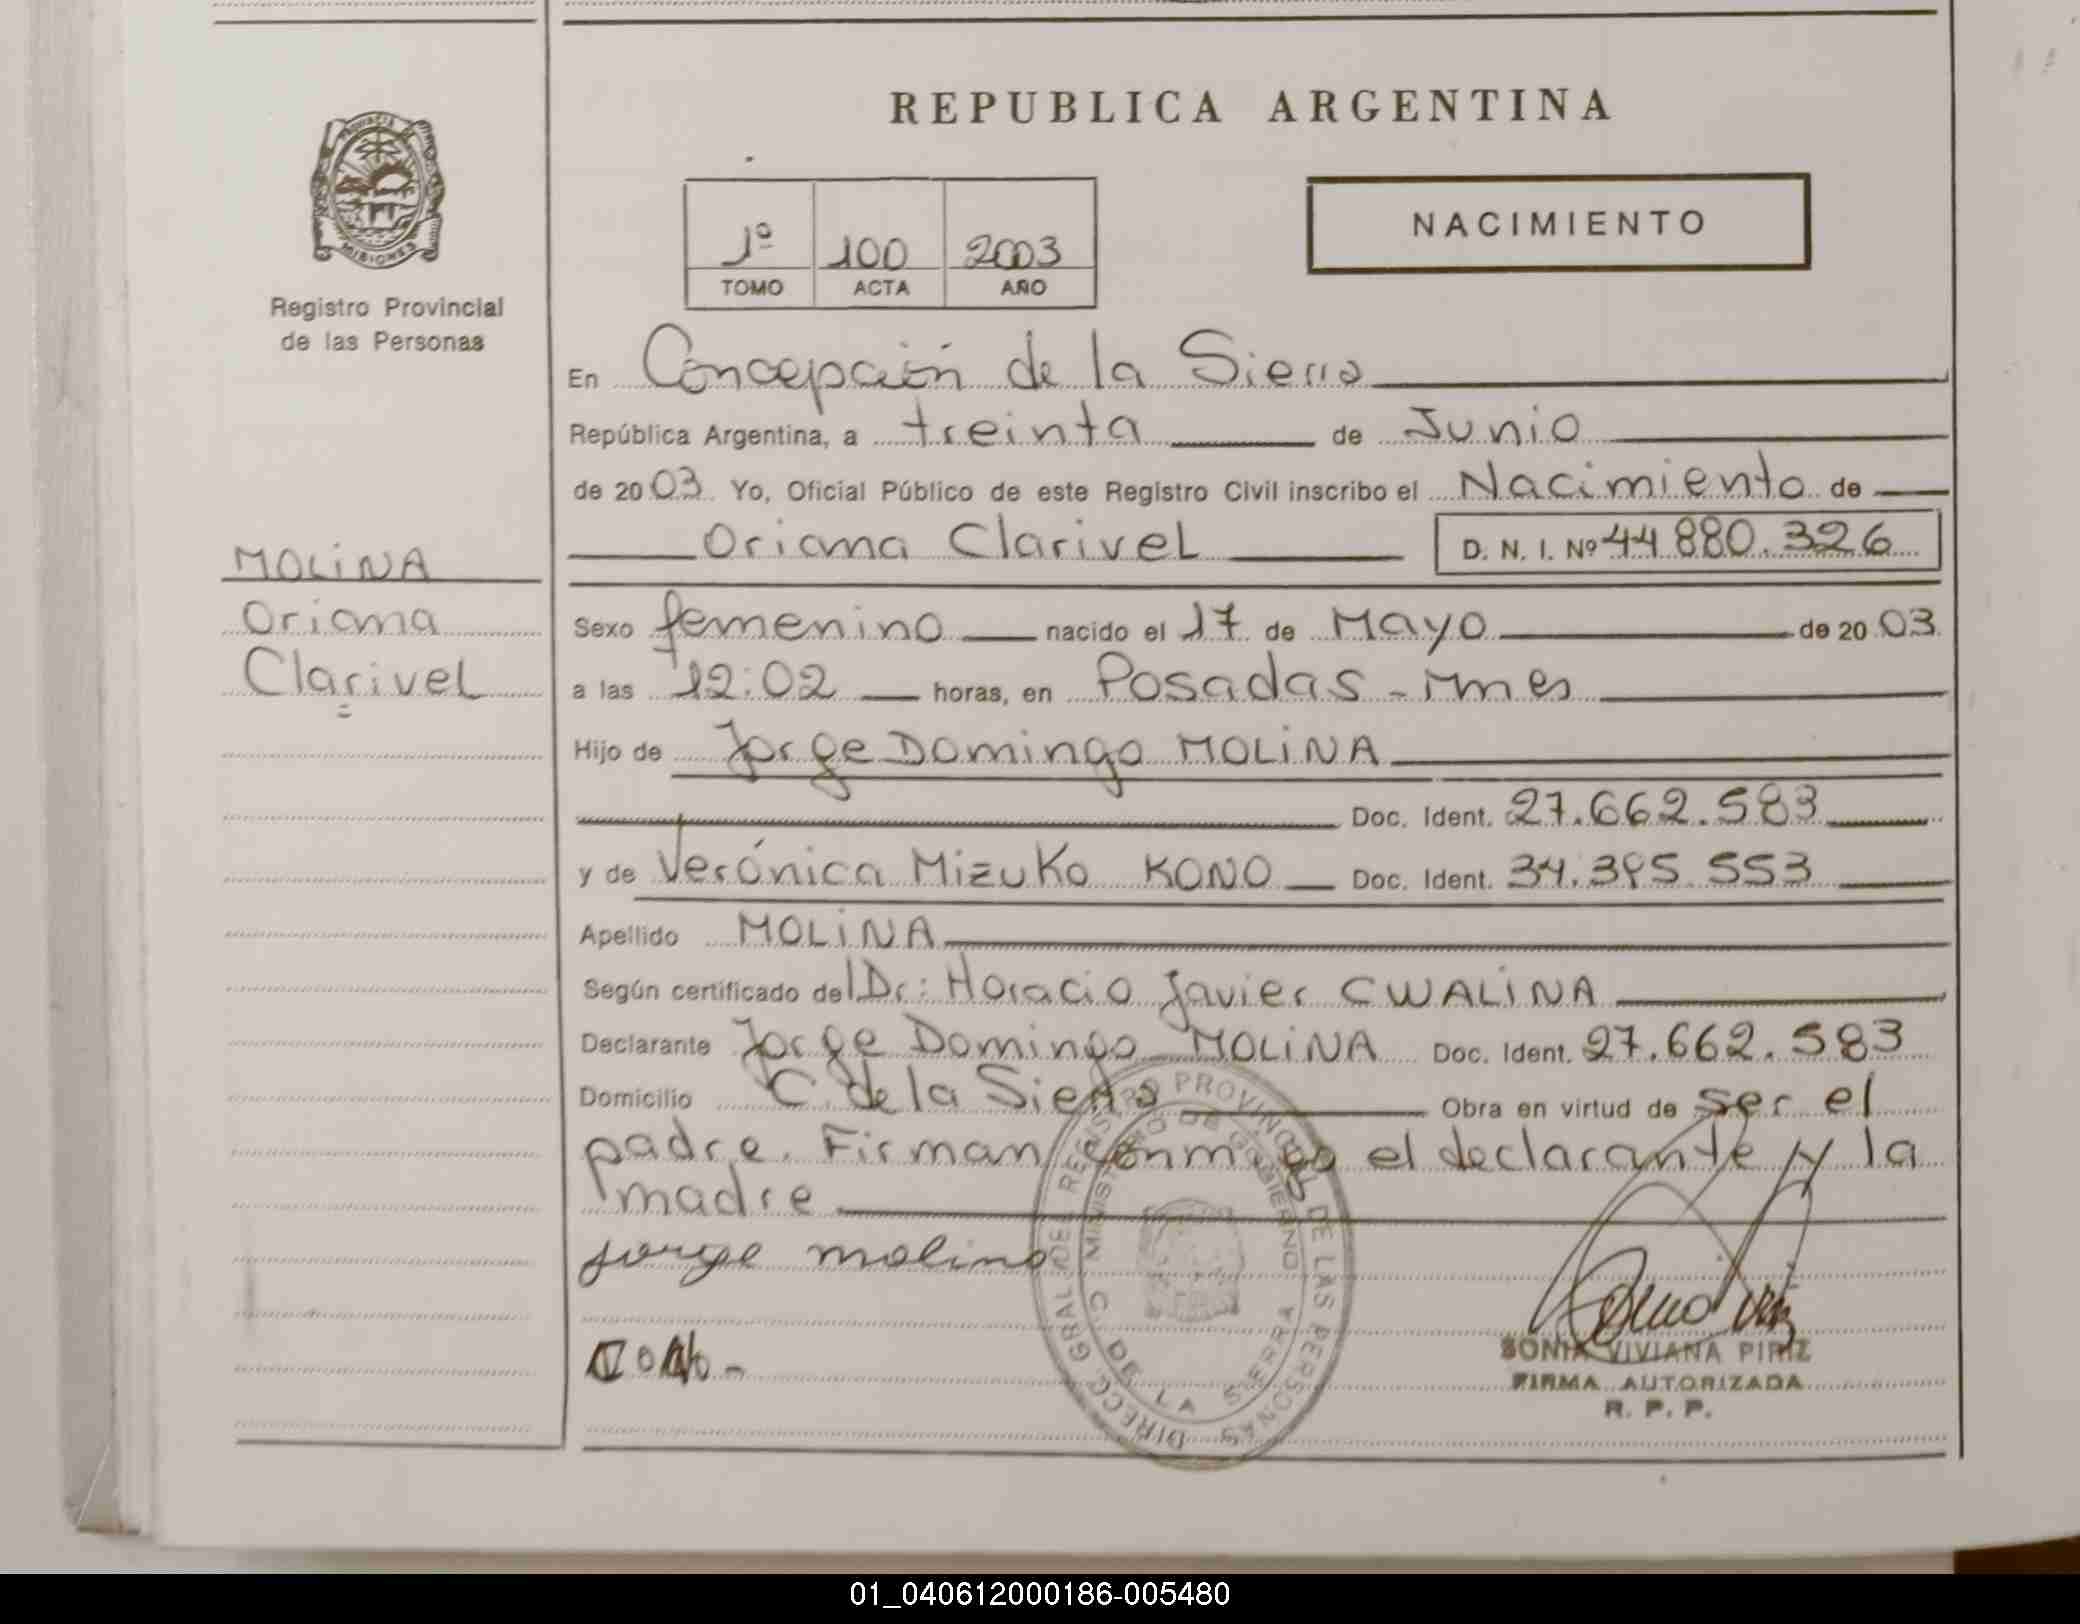 REPUBLICA ARGENTINA
PROVINCIA DE
MISIONES
Registro Provincial
de las Personas
1º 100 2003
TOMO ACTA AÑO
NACIMIENTO
En Concepción de la Sierra
República Argentina, a treinta de Junio
de 2003 Yo, Oficial Público de este Registro Civil inscribo el Nacimiento de
Oriana Clarivel D. N. I. Nº 44.880.326
MOLINA
Oriana
Clarivel
Sexo femenino nacido el 17 de Mayo de 2003
a las 12:02 horas, en Posadas - Mnes
Hijo de Jorge Domingo MOLINA
Doc. Ident. 27.662.583
y de Verónica Mizuko KONO Doc. Ident. 34.395.553
Apellido MOLINA
Según certificado del Dr: Horacio Javier CWALINA
Declarante Jorge Domingo MOLINA Doc. Ident. 27.662.583
Domicilio C. de la Sierra Obra en virtud de ser el
padre. Firman conmigo el declarante y la
madre
jorge molina
DIRECC. GRAL. DEL REGISTRO PROVINCIAL DE LAS PERSONAS
MINISTERIO DE GOBIERNO
C. DE LA SIERRA
SONIA VIVIANA PIRIZ
FIRMA AUTORIZADA
R. P. P.
01_040612000186-005480